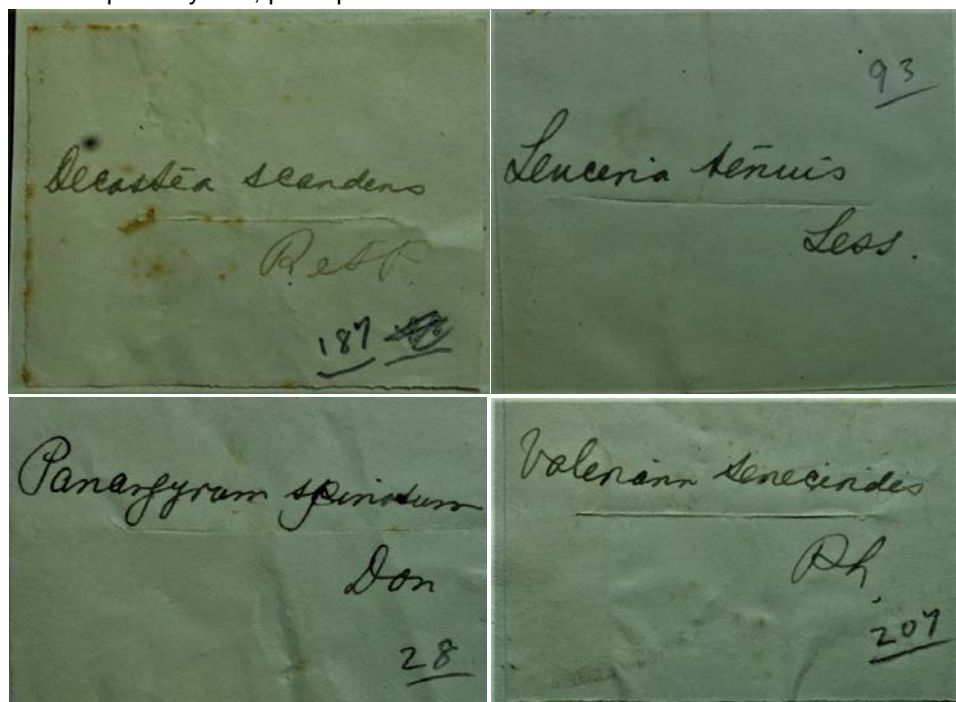 Decostea scandens
R et P
187
93
Leuceria tenuis
Less.
Panargyrum spinosum
Don
28
Valeriana senecioides
Ph,
207